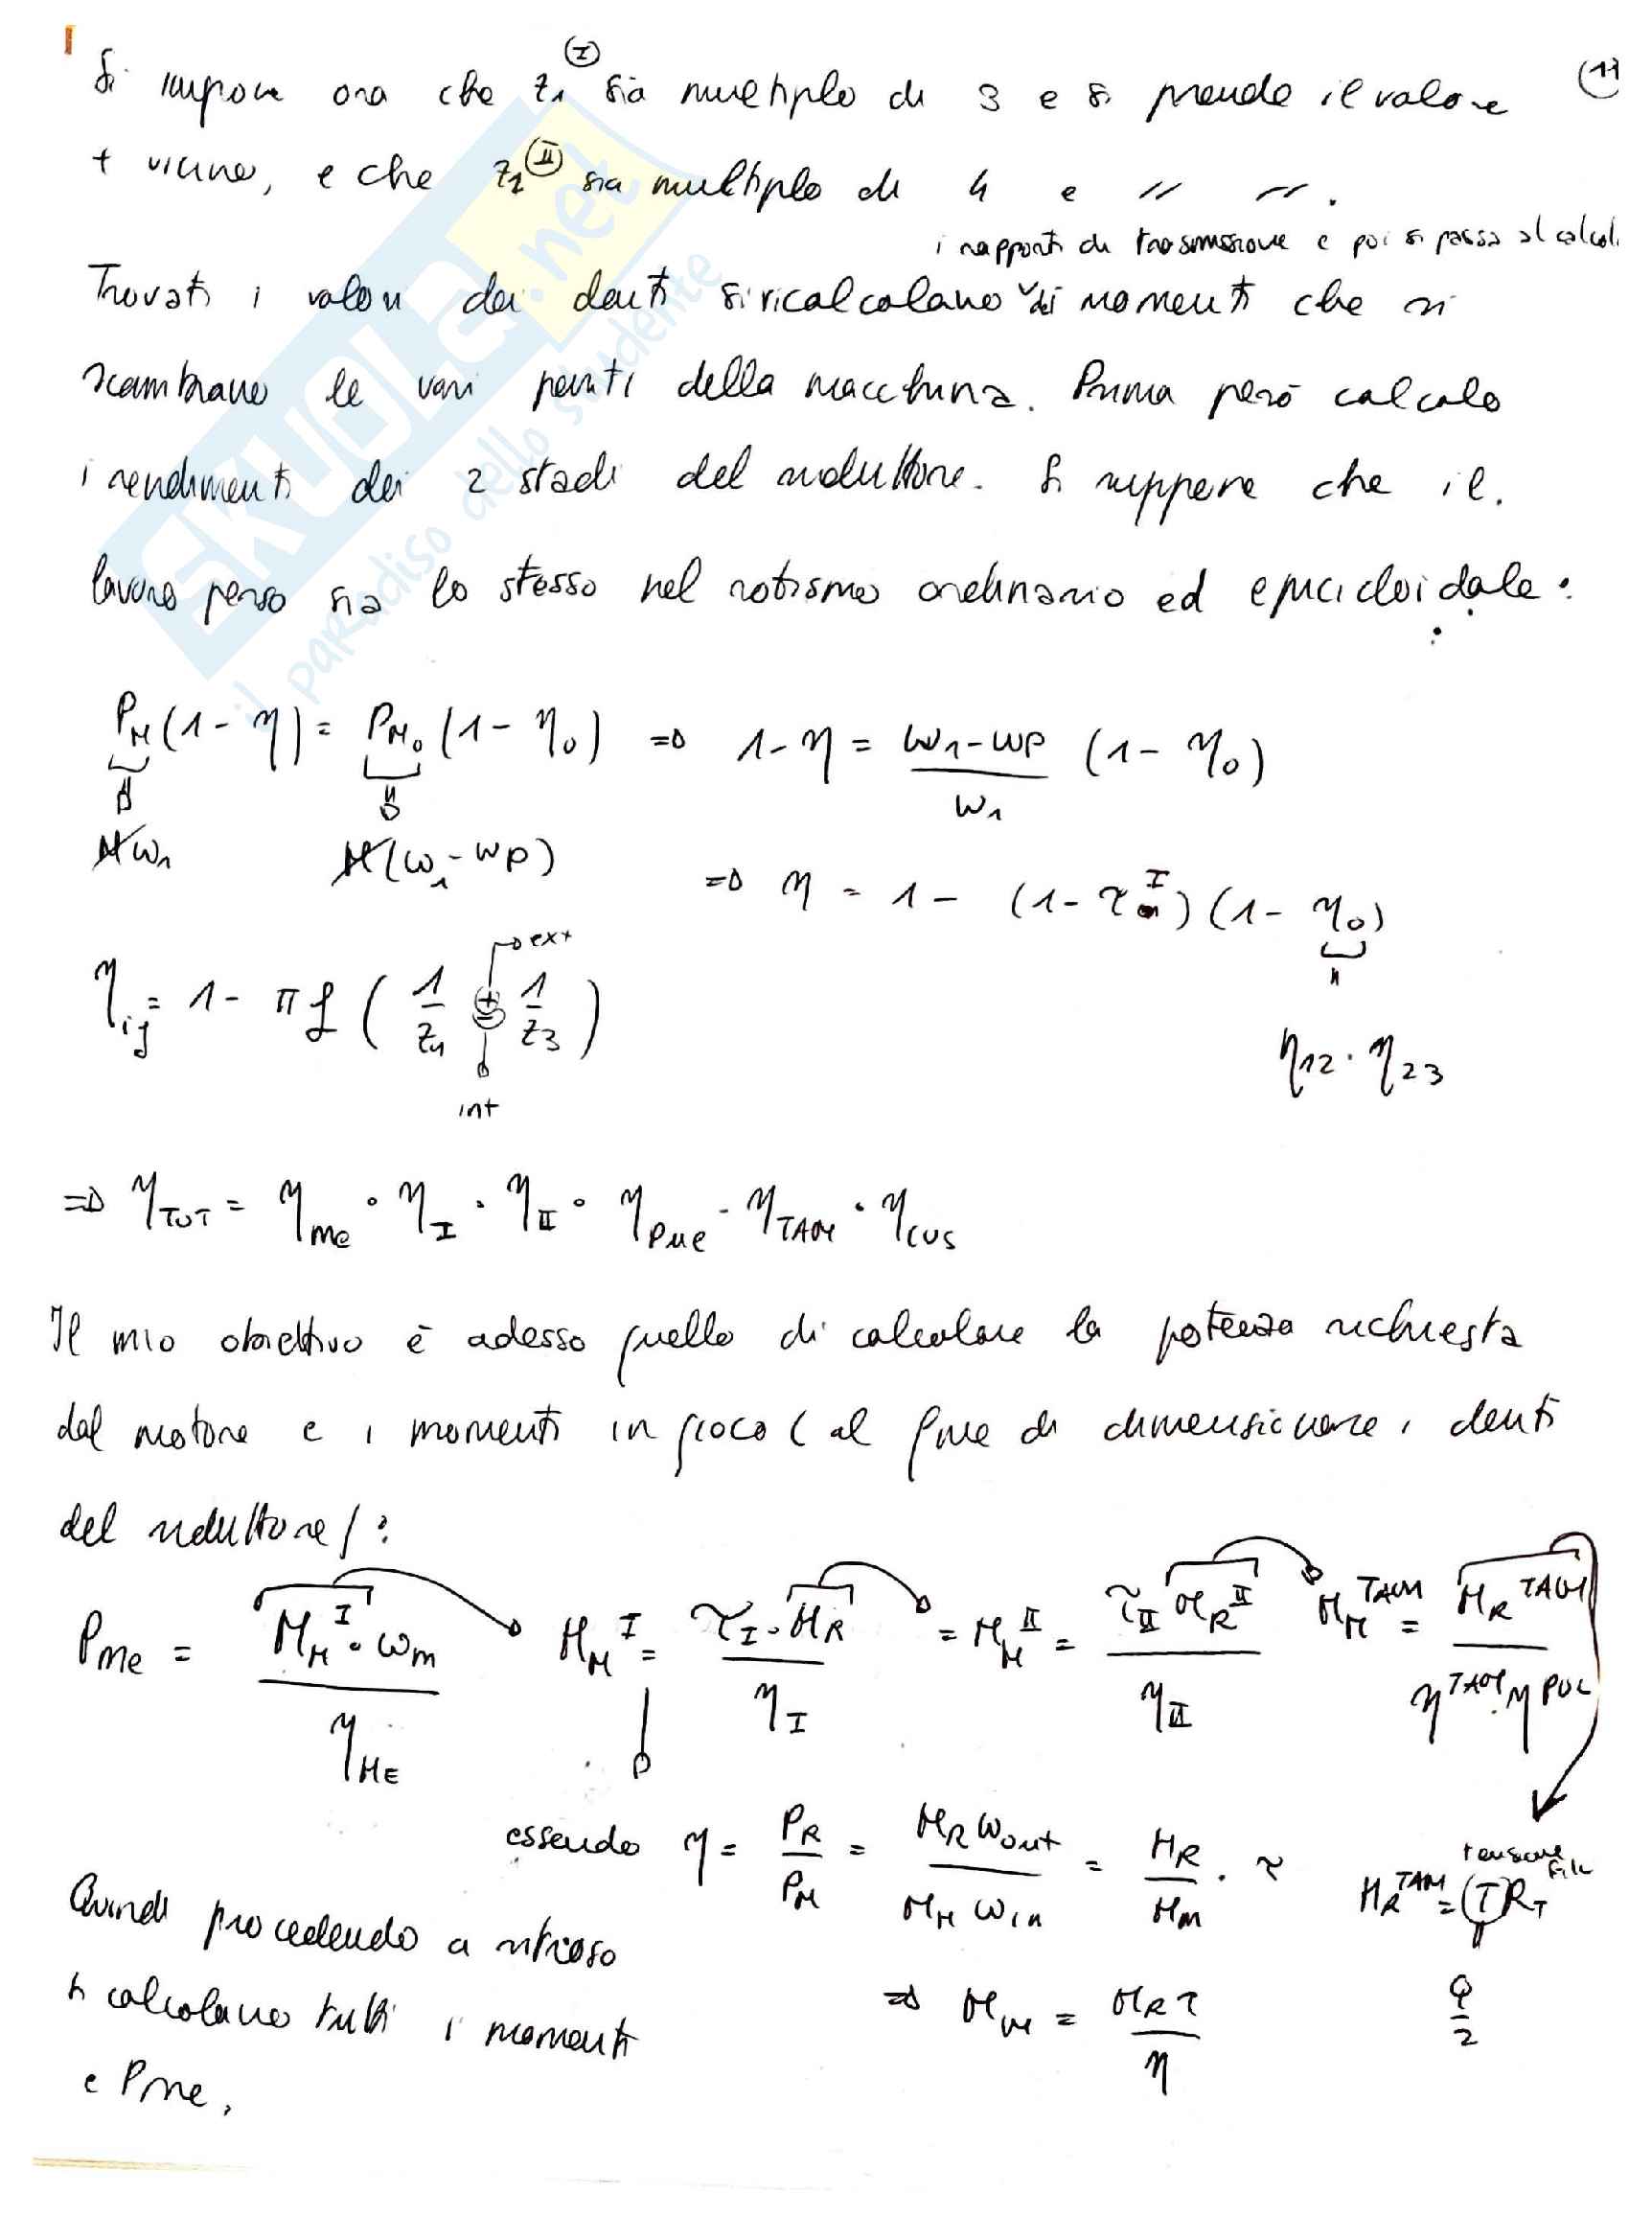 Si impone ora che z₁^(I) sia multiplo di 3 e si prende il valore
(11
+ vicino, e che z₁^(II) sia multiplo di 4 e // //.
i rapporti di trasmissione e poi si passa al calcol.
Trovati i valori dei denti si ricalcolano ˅ dei momenti che si
scambiano le vari parti della macchina. Prima però calcolo
i rendimenti dei 2 stadi del riduttore. Si suppone che il.
lavoro perso sia lo stesso nel rotismo ordinario ed epicicloidale:
P_M (1 - η) = P_M₀ (1 - η₀) => 1 - η = (ω₁ - ωp)/ω₁ (1 - η₀)
M ω₁ M(ω₁ - ωp) => η = 1 - (1 - τ^I)(1 - η₀)
ext
η_ij = 1 - π f (1/z₁ ± 1/z₃)
int
η₁₂ · η₂₃
=> η_TOT = η_me · η_I · η_II · η_Pue · η_TAM · η_CUS
Il mio obiettivo è adesso quello di calcolare la potenza richiesta
dal motore e i momenti in gioco (al fine di dimensionare i denti
del riduttore):
P_me = (M_M^I · ω_m)/η_ME M_M^I = (τ_I · M_R)/η_I = M_M^II = (τ_II M_R^II)/η_II M_M^TAM = M_R^TAM/(η^TAM · η^PUL)
essendo η = P_R/P_M = (M_R ω_out)/(M_M ω_in) = M_R/M_m · τ
tensione
M_R^TAM = (T)R_T
Quindi procedendo a ritroso
si calcolano tutti i momenti
e Pme.
=> M_M = (M_R τ)/η
Q/2
SKUOLA.net
il paradiso dello studente